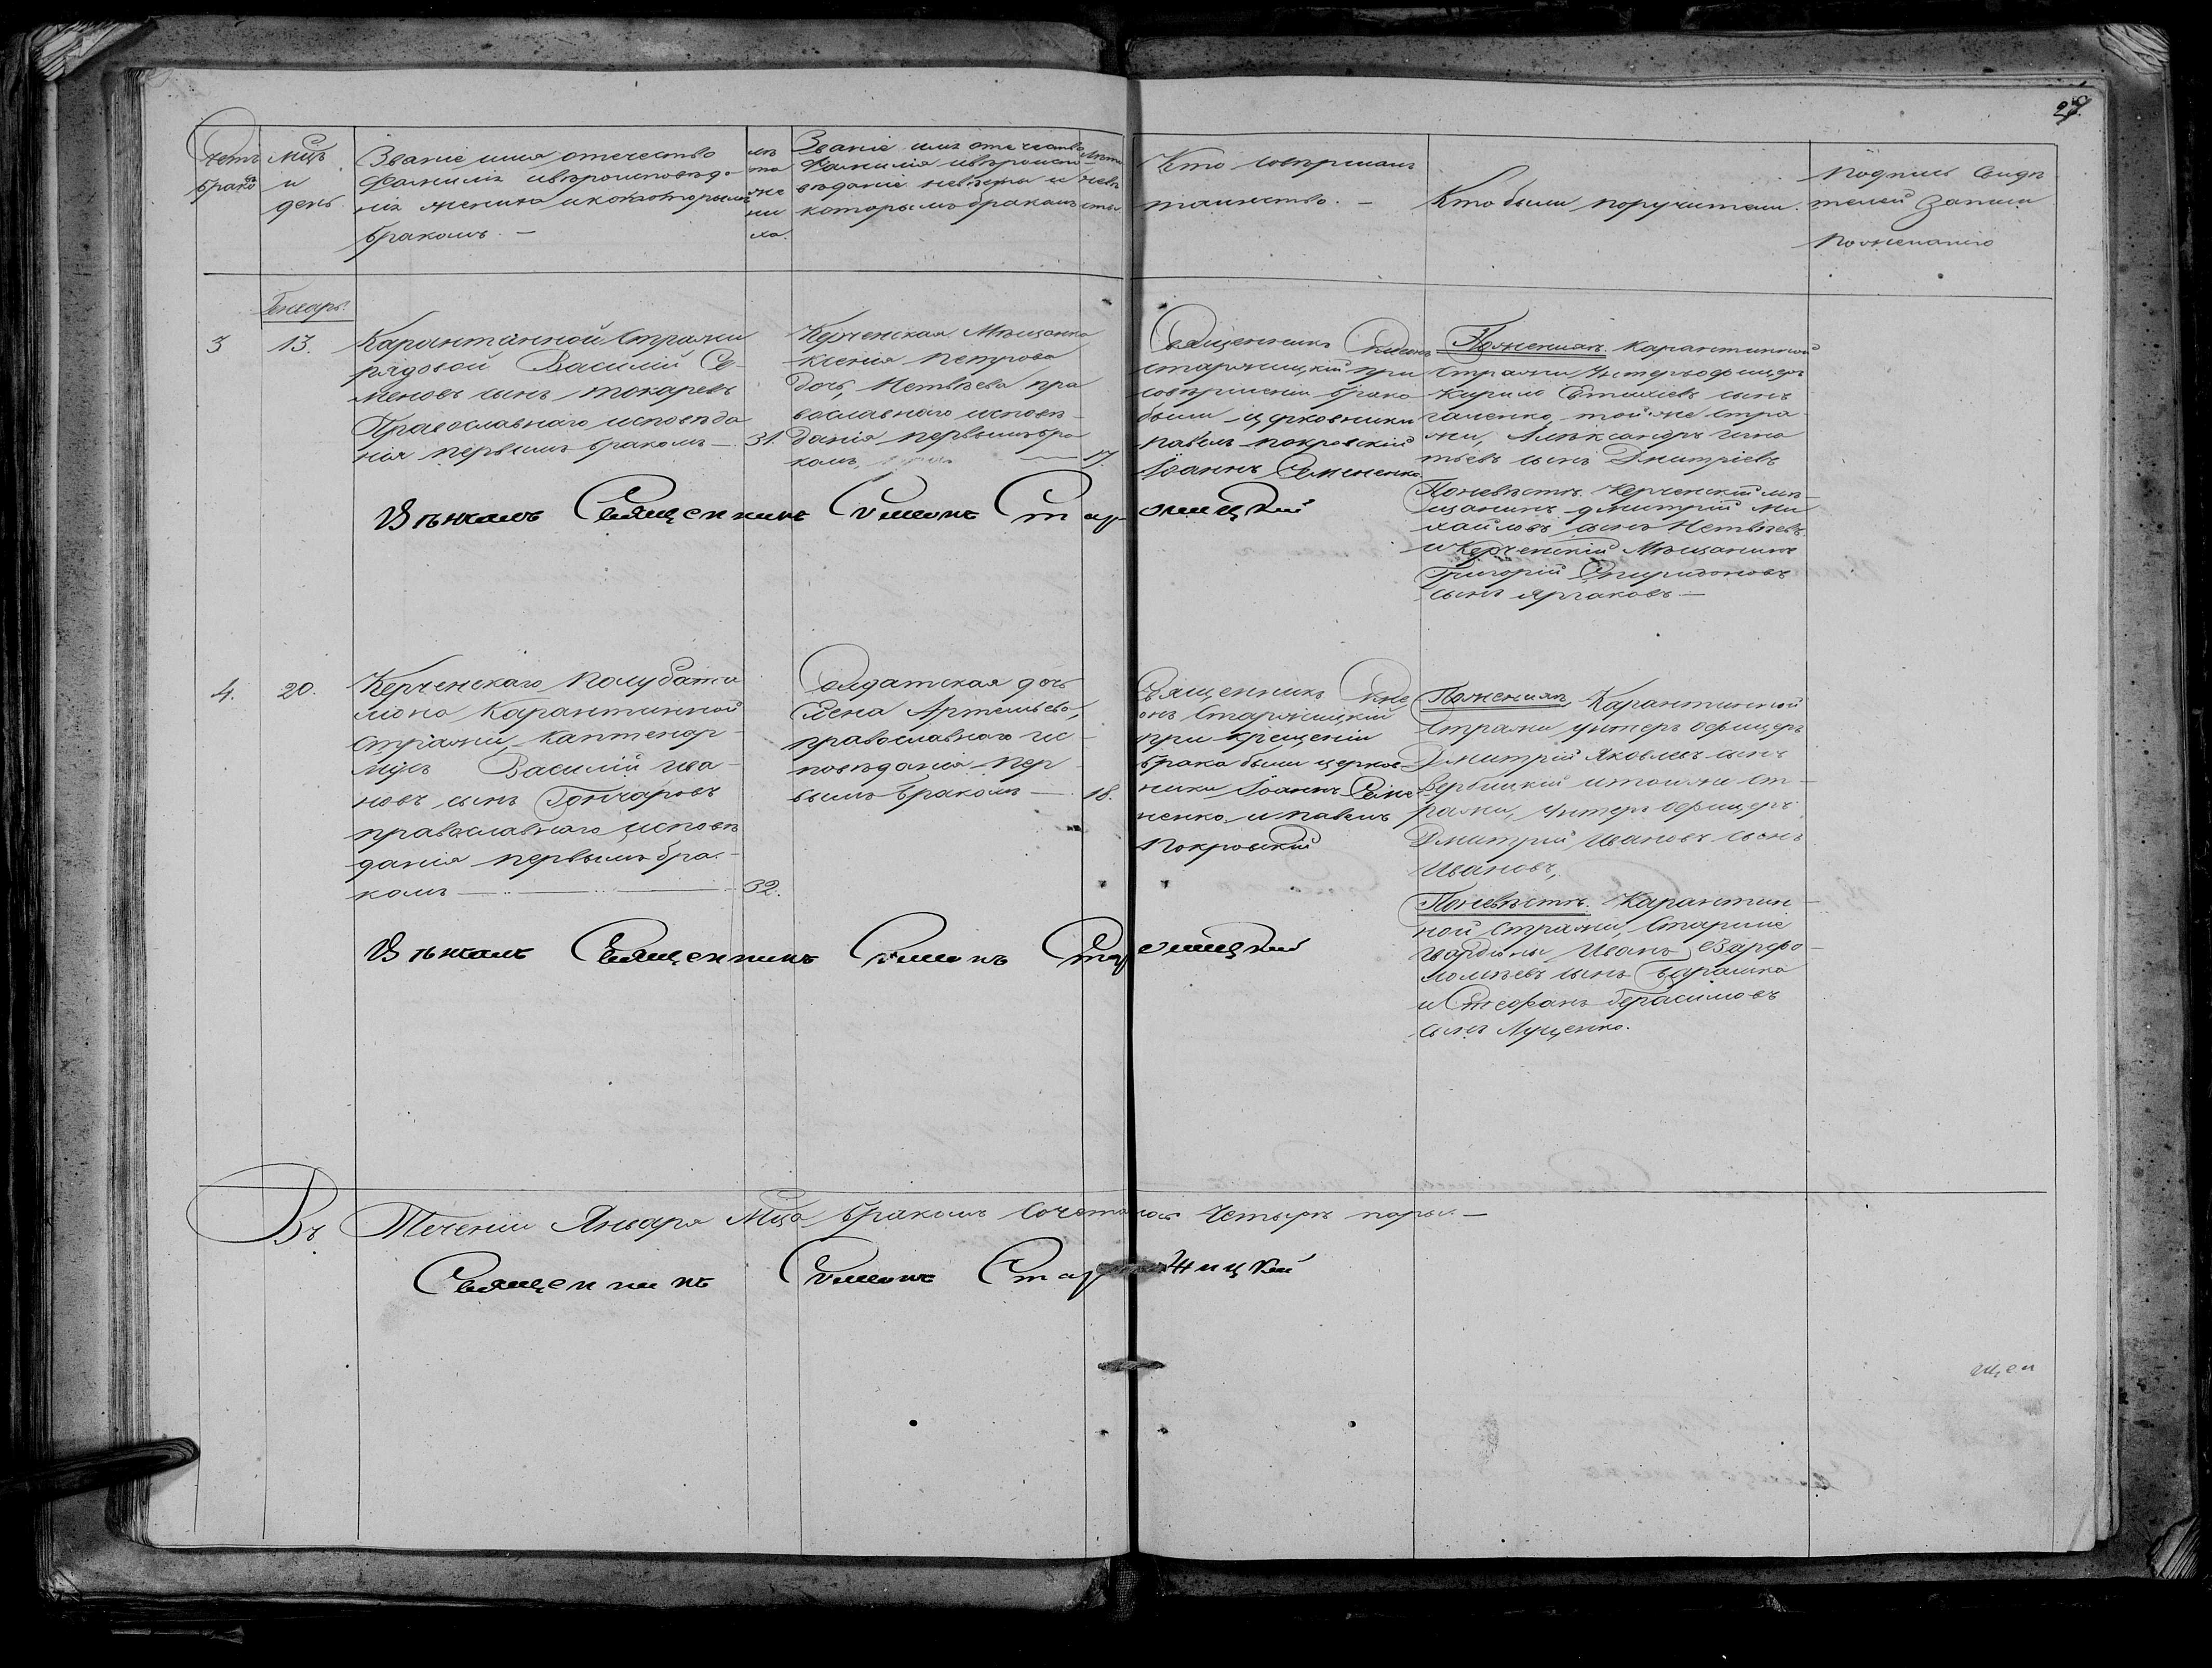 27.
Счетъ браковъ
Мцъ и день
Званіе имя отечество
фамилія ивѣроисповѣда-
нія жениха икоимъкоторымъ
бракомъ. —
лѣ
та
же
ни
ха.
Званіе имя отечество
Фамилія ивѣроиспо-
вѣданіе невѣсты и
которымъ бракомъ
Кто совершалъ
таинство. —
Кто были поручители.
Подпись свидѣ
телей записи
пожеланію
Генварь.
3
13.
Карантинной Стражи
рядовой Василій Се-
меновъ сынъ токаревъ
Православнаго исповѣда
нія первымъ бракомъ — 31.
Керченская Мѣщанка
Ксенія Петрова
дочь, Нетвѣева пра
вославнаго исповѣ-
данія первымъ бра
комъ — 17.
Священникъ Симеонъ
старжицкій при
совершеніи брака
были церковники
павелъ покровскій
Іоаннъ Семененко
Поженихѣ. Карантинной
Стражи Унтеръофицеръ
Кирило сынъ
той-же стра
жи, Александръ Игна
тьевъ сынъ Дмитріевъ
Поневѣстѣ. Керченскій мѣ-
щанинъ дмитрій Ми
хайловъ сынъ Нетвѣевъ
и Керченскій Мѣщанинъ
Григорій Спиридоновъ
сынъ Аргаковъ —
Вѣнчалъ Священникъ Симеонъ Старжицкій
4.
20.
Керченскаго Полубата
ліона Карантинной
Стражи, Каптенар-
мусъ Василій Ива-
новъ сынъ Гончаровъ
православнаго исповѣ
данія первымъ бра-
комъ — 32.
Солдатская дочь
Елена Артемьева,
православнаго ис-
повѣданія пер-
вымъ бракомъ — 18.
Священникъ Симе
онъ Старжицкій
при крещеніи
брака были церков-
ники Іоаннъ Семе-
ненко и павелъ
Покровскій
Поженихѣ. Карантинной
Стражи унтеръ офицеръ
Дмитрій Яковлевъ сынъ
Вербицкій итойже Ст-
ражи, Унтеръ офицеръ
Дмитрій Ивановъ сынъ
Ивановъ,
Поневѣстѣ. Карантин-
ной Стражи, Старшіе
гвардіоны, Иванъ Варфо-
ломѣевъ сынъ Барашка
и Стефанъ Герасимовъ
сынъ Луценко.
Вѣнчалъ Священникъ Симеонъ Старжицкій
Въ Теченіи Января Мца бракомъ Сочеталось Четыре пары. —
Священникъ Симеонъ Старжицкій
щен